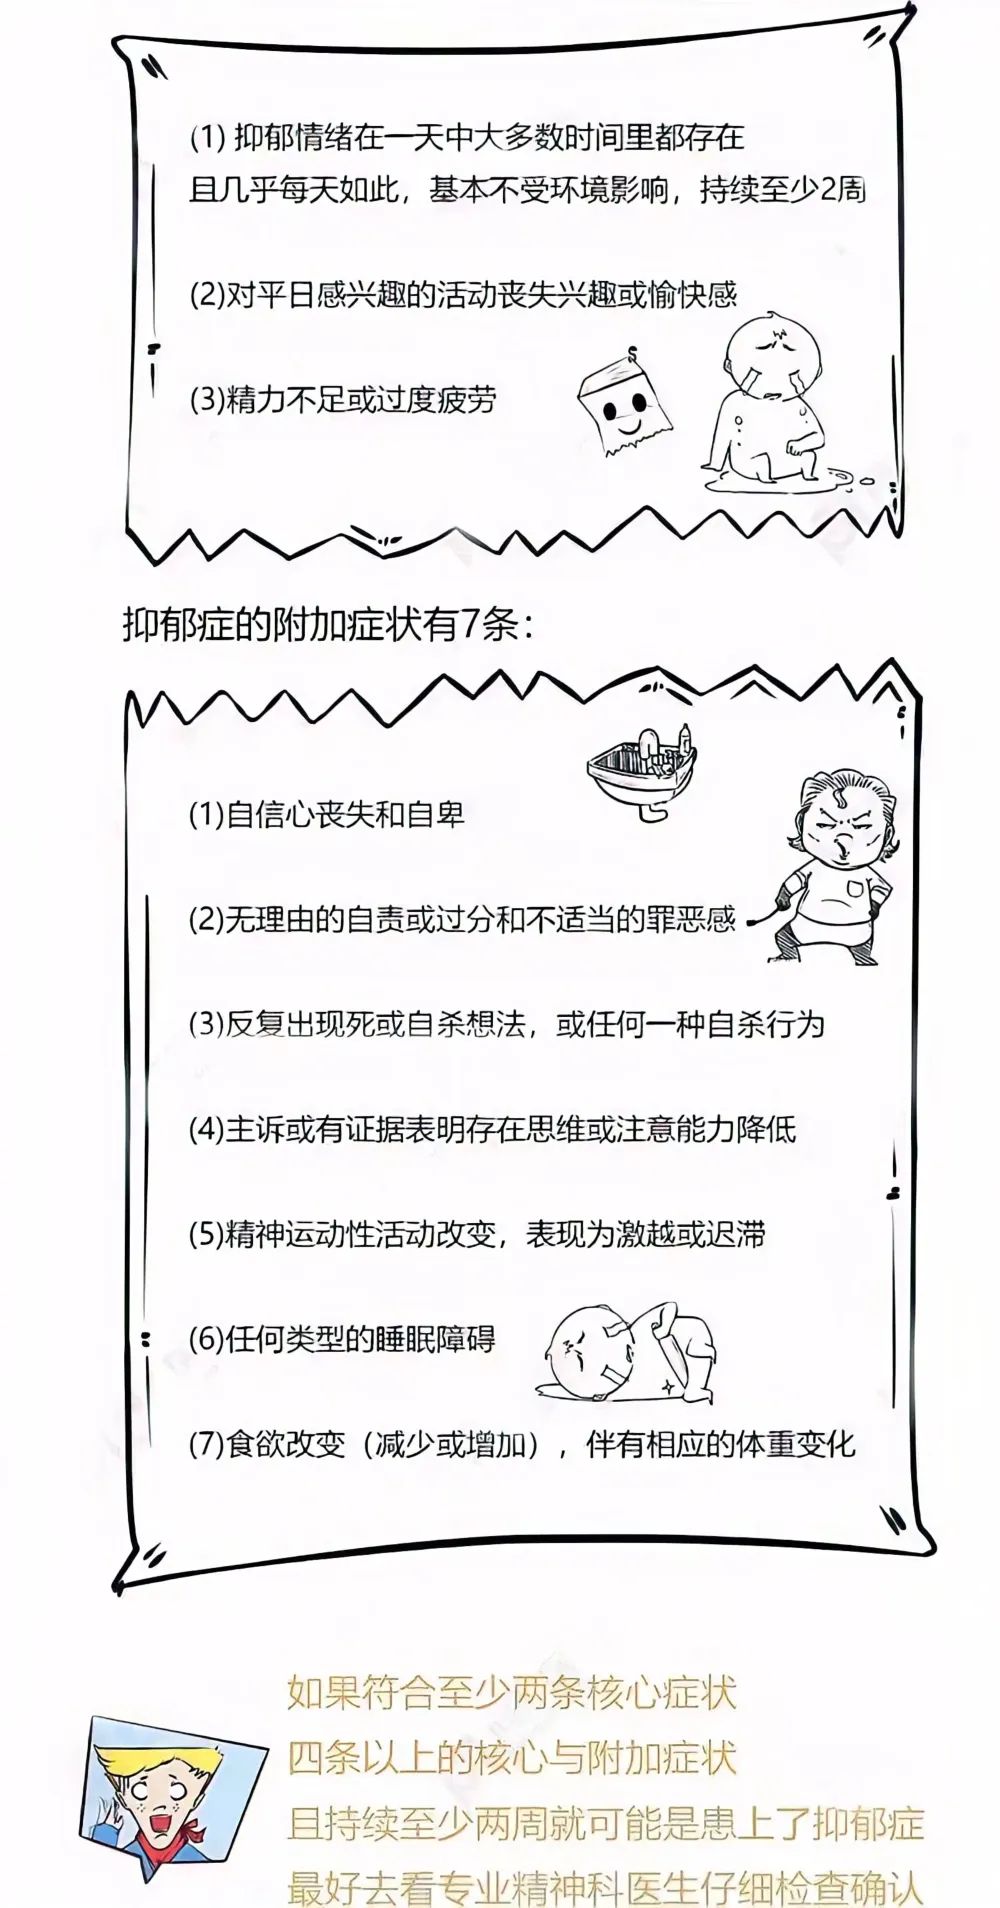 (1) 抑郁情绪在一天中大多数时间里都存在
且几乎每天如此，基本不受环境影响，持续至少2周
(2)对平日感兴趣的活动丧失兴趣或愉快感
(3)精力不足或过度疲劳
抑郁症的附加症状有7条：
(1)自信心丧失和自卑
(2)无理由的自责或过分和不适当的罪恶感
(3)反复出现死或自杀想法，或任何一种自杀行为
(4)主诉或有证据表明存在思维或注意能力降低
(5)精神运动性活动改变，表现为激越或迟滞
(6)任何类型的睡眠障碍
(7)食欲改变（减少或增加），伴有相应的体重变化
如果符合至少两条核心症状
四条以上的核心与附加症状
且持续至少两周就可能是患上了抑郁症
最好去看专业精神科医生仔细检查确认